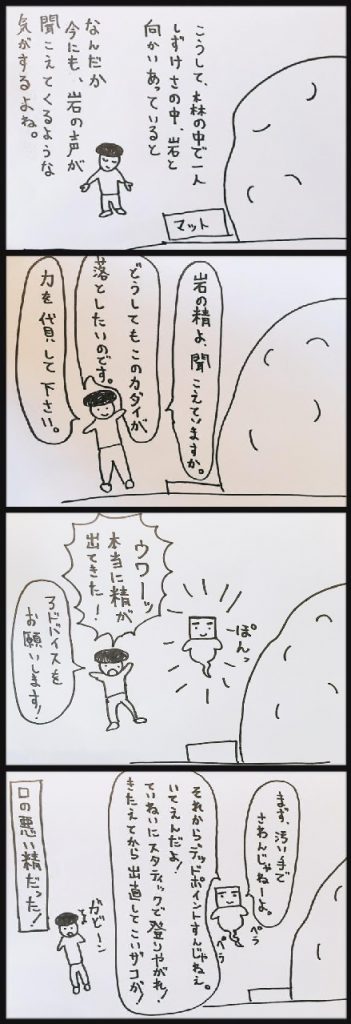 こうして、森の中で一人
しずけさの中、岩と
向かいあっていると
なんだか
今にも、岩の声が
聞こえてくるような
気がするよね。
マット
岩の精よ、聞こえていますか。
どうしてもこのカダイが
落としたいのです。
力を貸して下さい。
ぽんっ
ウワーッ
本当に精が
出てきた!
アドバイスを
お願いします!
まず、汚い手で
さわんじゃねーよ。
ペラ
ペラ
それからデッドポイントすんじゃねぇ。
いてえんだよ!
ていねいにスタティックで登りやがれ!
きたえてから出直してこいザコが!
ガビーン
口の悪い精だった!